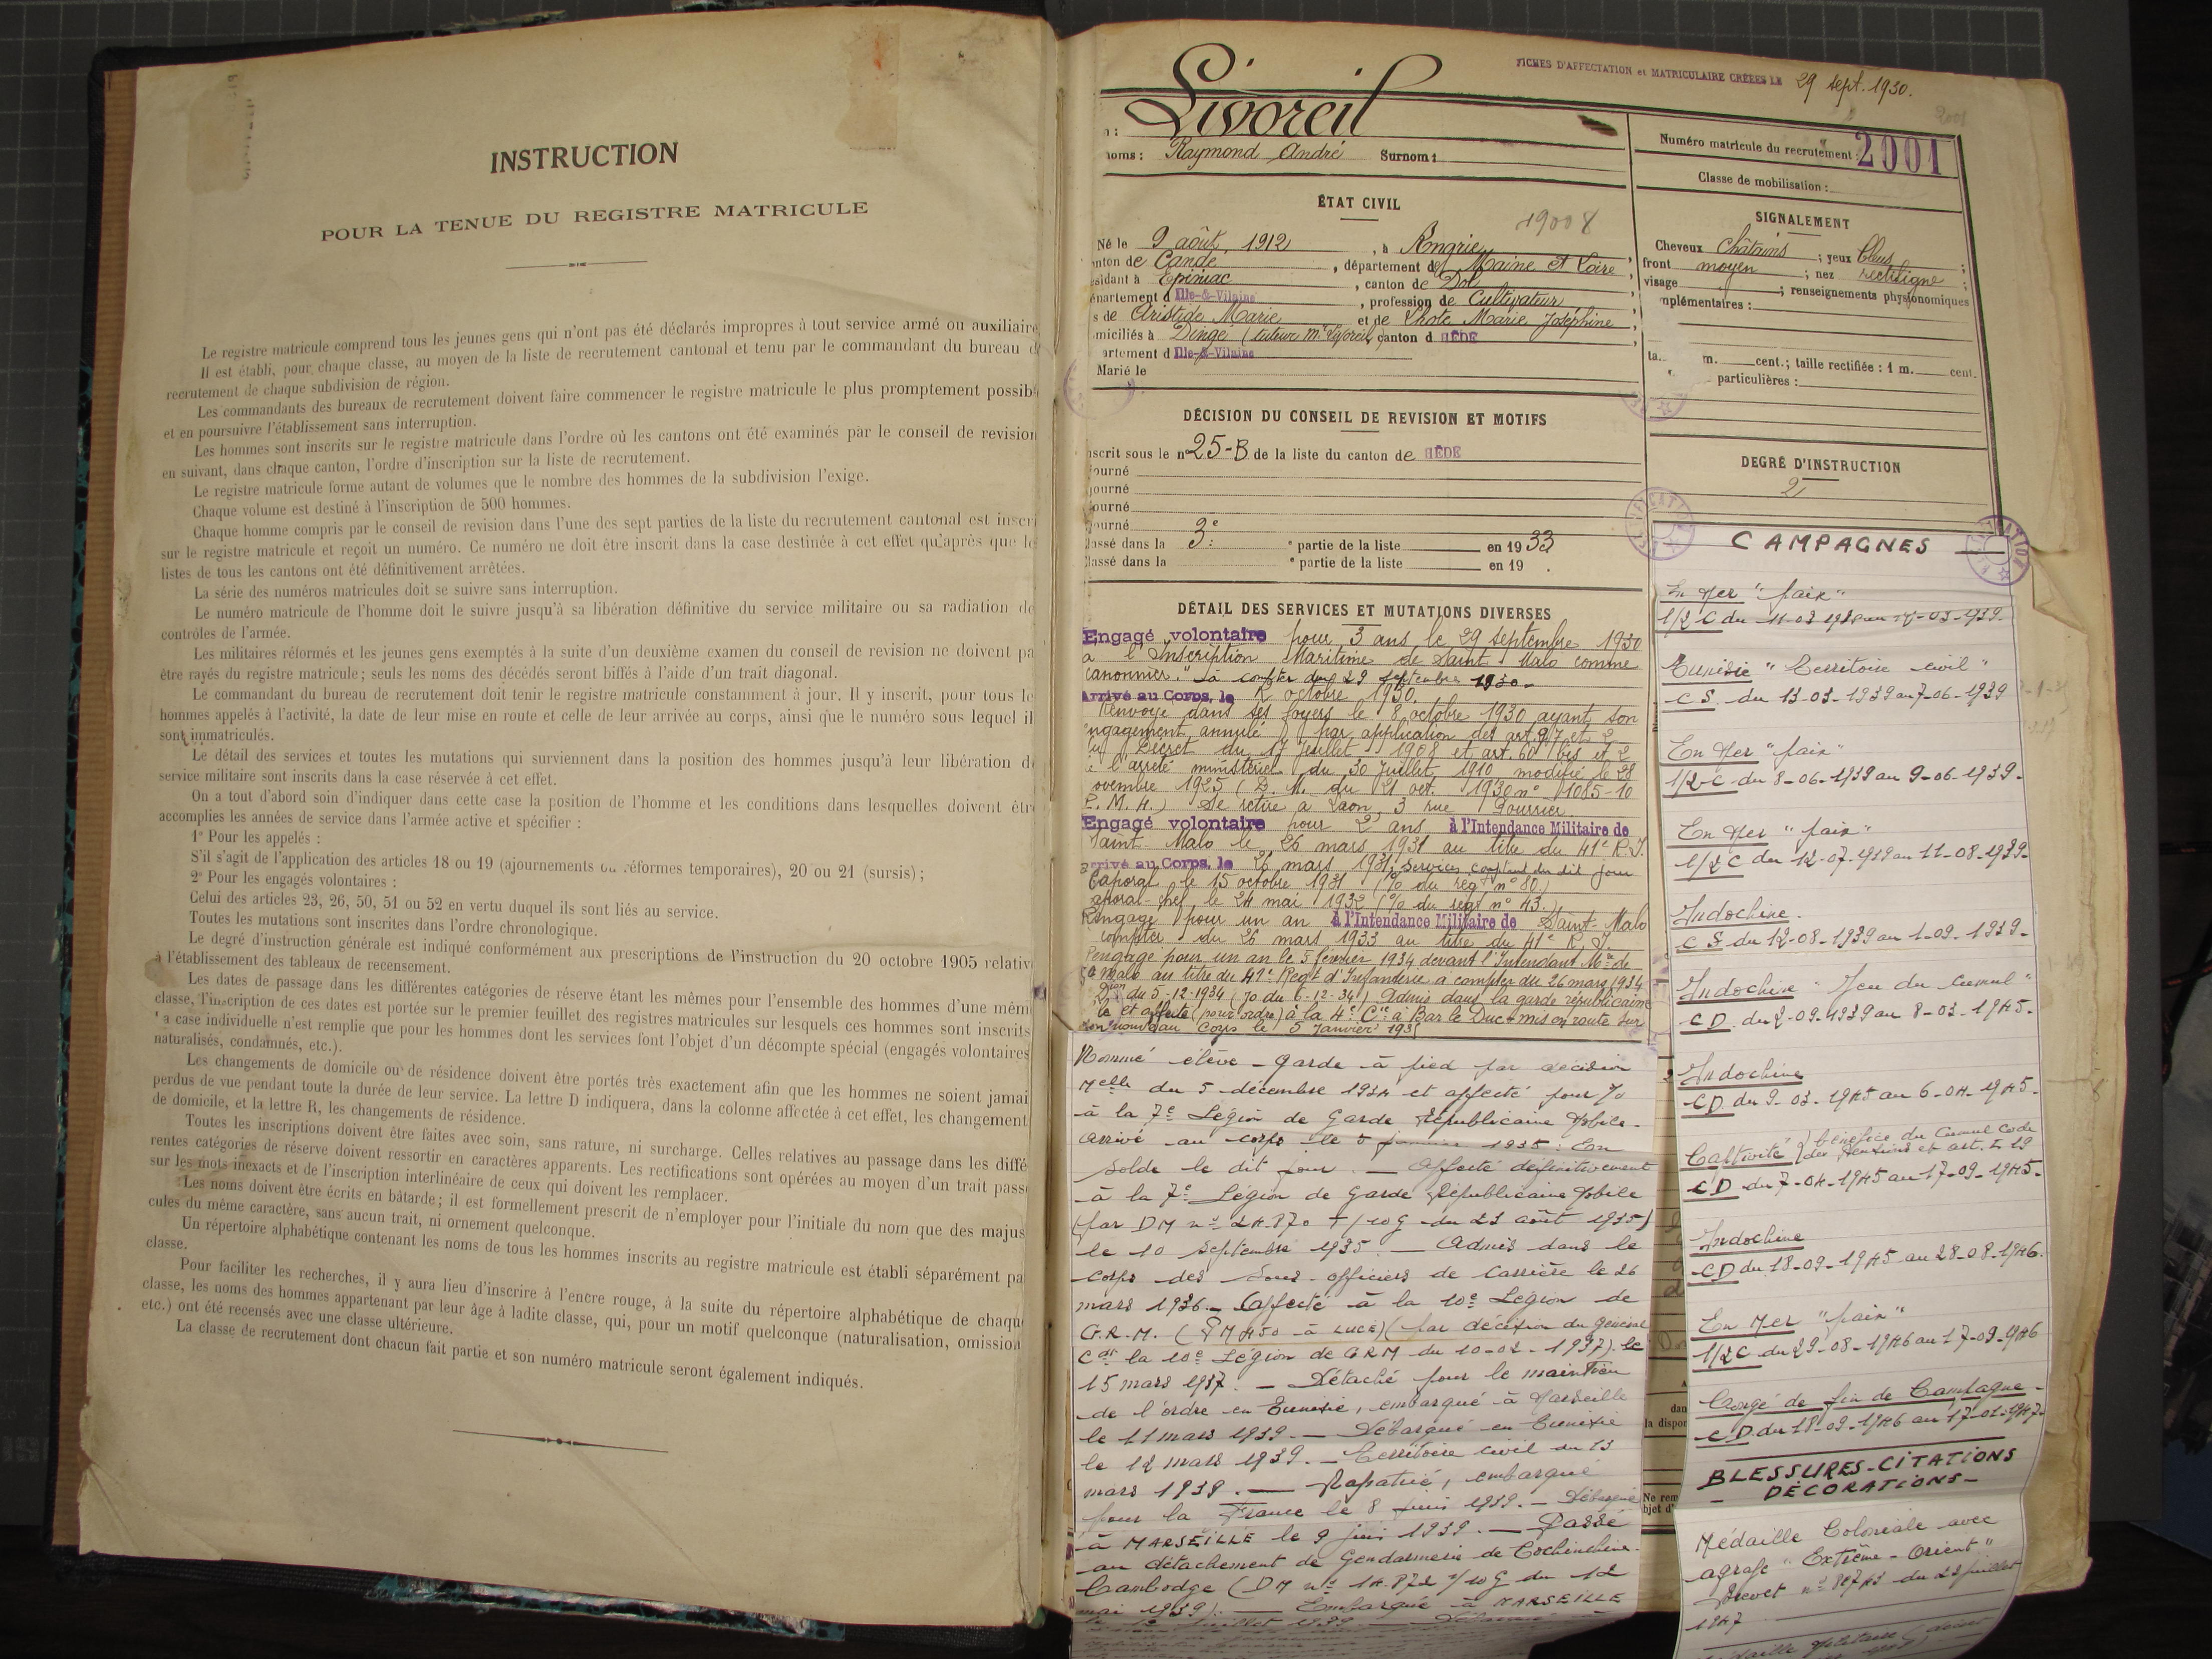 INSTRUCTION
POUR LA TENUE DU REGISTRE MATRICULE
Le registre matricule comprend tous les jeunes gens qui n'ont pas été déclarés impropres à tout service armé ou auxiliaire
Il est établi, pour chaque classe, au moyen de la liste de recrutement cantonal et tenu par le commandant du bureau d
recrutement de chaque subdivision de région.
Les commandants des bureaux de recrutement doivent faire commencer le registre matricule le plus promptement possib
et en poursuivre l'établissement sans interruption.
Les hommes sont inscrits sur le registre matricule dans l'ordre où les cantons ont été examinés par le conseil de revision
en suivant, dans chaque canton, l'ordre d'inscription sur la liste de recrutement.
Le registre matricule forme autant de volumes que le nombre des hommes de la subdivision l'exige.
Chaque volume est destiné à l'inscription de 500 hommes.
Chaque homme compris par le conseil de revision dans l'une des sept parties de la liste du recrutement cantonal est inscri
sur le registre matricule et reçoit un numéro. Ce numéro ne doit être inscrit dans la case destinée à cet effet qu'après que le
listes de tous les cantons ont été définitivement arrêtées.
La série des numéros matricules doit se suivre sans interruption.
Le numéro matricule de l'homme doit le suivre jusqu'à sa libération définitive du service militaire ou sa radiation de
contrôles de l'armée.
Les militaires réformés et les jeunes gens exemptés à la suite d'un deuxième examen du conseil de revision ne doivent pa
être rayés du registre matricule ; seuls les noms des décédés seront biffés à l'aide d'un trait diagonal.
Le commandant du bureau de recrutement doit tenir le registre matricule constamment à jour. Il y inscrit, pour tous le
hommes appelés à l'activité, la date de leur mise en route et celle de leur arrivée au corps, ainsi que le numéro sous lequel il
sont immatriculés.
Le détail des services et toutes les mutations qui surviennent dans la position des hommes jusqu'à leur libération d
service militaire sont inscrits dans la case réservée à cet effet.
On a tout d'abord soin d'indiquer dans cette case la position de l'homme et les conditions dans lesquelles doivent êtr
accomplies les années de service dans l'armée active et spécifier :
1° Pour les appelés :
S'il s'agit de l'application des articles 18 ou 19 (ajournements ou réformes temporaires), 20 ou 21 (sursis) ;
2° Pour les engagés volontaires :
Celui des articles 23, 26, 50, 51 ou 52 en vertu duquel ils sont liés au service.
Toutes les mutations sont inscrites dans l'ordre chronologique.
Le degré d'instruction générale est indiqué conformément aux prescriptions de l'instruction du 20 octobre 1905 relativ
à l'établissement des tableaux de recensement.
Les dates de passage dans les différentes catégories de réserve étant les mêmes pour l'ensemble des hommes d'une mêm
classe, l'inscription de ces dates est portée sur le premier feuillet des registres matricules sur lesquels ces hommes sont inscrits
a case individuelle n'est remplie que pour les hommes dont les services font l'objet d'un décompte spécial (engagés volontaires
naturalisés, condamnés, etc.).
Les changements de domicile ou de résidence doivent être portés très exactement afin que les hommes ne soient jamai
perdus de vue pendant toute la durée de leur service. La lettre D indiquera, dans la colonne affectée à cet effet, les changement
de domicile, et la lettre R, les changements de résidence.
Toutes les inscriptions doivent être faites avec soin, sans rature, ni surcharge. Celles relatives au passage dans les diffé
rentes catégories de réserve doivent ressortir en caractères apparents. Les rectifications sont opérées au moyen d'un trait pass
sur les mots inexacts et de l'inscription interlinéaire de ceux qui doivent les remplacer.
Les noms doivent être écrits en bâtarde ; il est formellement prescrit de n'employer pour l'initiale du nom que des majus
cules du même caractère, sans aucun trait, ni ornement quelconque.
Un répertoire alphabétique contenant les noms de tous les hommes inscrits au registre matricule est établi séparément pa
classe.
Pour faciliter les recherches, il y aura lieu d'inscrire à l'encre rouge, à la suite du répertoire alphabétique de chaqu
classe, les noms des hommes appartenant par leur âge à ladite classe, qui, pour un motif quelconque (naturalisation, omission
etc.) ont été recensés avec une classe ultérieure.
La classe de recrutement dont chacun fait partie et son numéro matricule seront également indiqués.
FICHES D'AFFECTATION et MATRICULAIRE CRÉÉES LE 29 sept. 1930.
Livoreil
noms : Raymond André Surnom :
ÉTAT CIVIL
19008
Né le 9 août 1912, à Angrie
nton de Candé, département de Maine et Loire
sidant à Epiniac, canton de Dol
épartement d Ille-&-Vilaine, profession de Cultivateur
s de Aristide Marie et de Lhote Marie Joséphine
miciliés à Dingé (tuteur Mr Livoreil) canton d HÉDÉ
artement d Ille-&-Vilaine
Marié le
DÉCISION DU CONSEIL DE REVISION ET MOTIFS
nscrit sous le n° 25-B de la liste du canton de HÉDÉ
journé
journé
journé
journé
lassé dans la 3e ° partie de la liste en 1933
lassé dans la ° partie de la liste en 19 .
DÉTAIL DES SERVICES ET MUTATIONS DIVERSES
Engagé volontaire pour 3 ans le 29 septembre 1930
à l'Inscription Maritime de Saint Malo comme
canonnier. à compter du 29 septembre 1930 -
Arrivé au Corps, le 2 octobre 1930.
Renvoyé dans ses foyers le 8 octobre 1930 ayant son
ngagement annulé par application des art 97 et 2
du Décret du 17 juillet 1908 et art. 60 bis et 2
e l'arrêté ministériel du 30 Juillet 1910 modifié le 28
ovembre 1925 (D. M. du 21 oct. 1930 n° 1085-10
P. M. 4.) Se retire à Laon, 3 rue
Engagé volontaire pour 2 ans à l'Intendance Militaire de
Saint-Malo le 26 mars 1931 au titre du 41e R.I.
rrivé au Corps, le 26 mars 1931 Services comptant du dit jour
Caporal le 15 octobre 1931 (% du regt n° 80)
aporal-chef le 24 mai 1932 (% du regt n° 43.)
Rengagé pour un an à l'Intendance Militaire de Saint-Malo
compter du 26 mars 1933 au titre du 41e R.I.
Rengagé pour un an le 5 février 1934 devant l'Intendant Mre de
St Malo au titre du 41e Regt d'Infanterie à compter du 26 mars 1934
Don du 5-12-1934 (JO du 6-12-34) Admis dans la garde républicaine
le et affecté (pour ordre) à la 4e Cie à Bar le Duc mis en route sur
son nouveau Corps le 5 Janvier 193
Nommé élève-garde à pied par décision
Melle du 5 décembre 1934 et affecté pour %
à la 7e Légion de Garde Républicaine Mobile -
Arrivé au corps le 5 janvier 1935. En
solde le dit jour. — Affecté définitivement
à la 7e Légion de Garde Républicaine Mobile
(par DM n° 24.870 T/10G du 23 août 1935)
le 10 septembre 1935. — Admis dans le
corps des sous-officiers de carrière le 26
mars 1936. — Affecté à la 10e Légion de
G.R.M. ( à LUCÉ) (par décision du Général
Cdt la 10e Légion de GRM du 10-02-1937) le
15 mars 1937. — Détaché pour le maintien
de l'ordre en Tunisie, embarqué à Marseille
le 11 mars 1939. — Débarqué en Tunisie
le 12 mars 1939. — Territoire civil du 13
mars 1939. — Rapatrié, embarqué
pour la France le 8 juin 1939. — Débarqué
à MARSEILLE le 9 juin 1939. — Passé
au détachement de Gendarmerie de Cochinchine-
Cambodge (DM n° 14.872 T/10G du 12
mai 1939). — Embarqué à MARSEILLE
juillet 1939. —
Numéro matricule du recrutement : 2001
Classe de mobilisation :
SIGNALEMENT
Cheveux Châtains ; yeux bleus ;
front moyen ; nez rectiligne ;
visage ; renseignements physionomiques
mplémentaires :
ta m. cent.; taille rectifiée : 1 m. cent.
particulières :
DEGRÉ D'INSTRUCTION
2
CAMPAGNES
En Mer "paix"
1/2 C du 11-03-1939 au 12-03-1939.
Tunisie "Territoire civil"
C S. du 13-03-1939 au 7-06-1939
En Mer "paix"
1/2 C du 8-06-1939 au 9-06-1939.
En Mer "paix"
1/2 C du 12-07-1939 au 11-08-1939.
Indochine.
C S du 12-08-1939 au 1-09-1939.
Indochine
C D. du 2-09-1939 au 8-03-1945.
Indochine
C D. du 9-03-1945 au 6-04-1945.
Captivité } bénéfice du Cumul Code
des Pensions et art. L 19
C D du 7-04-1945 au 17-09-1945.
Indochine
C D du 18-09-1945 au 28-08-1946.
En Mer "paix"
1/2 C du 29-08-1946 au 17-09-1946
Congé de fin de Campagne -
C D. du 18-09-1946 au 17-01-1947.
BLESSURES-CITATIONS
- DÉCORATIONS -
Médaille Coloniale avec
agrafe "Extrême-Orient"
Brevet du 23 juillet
1947